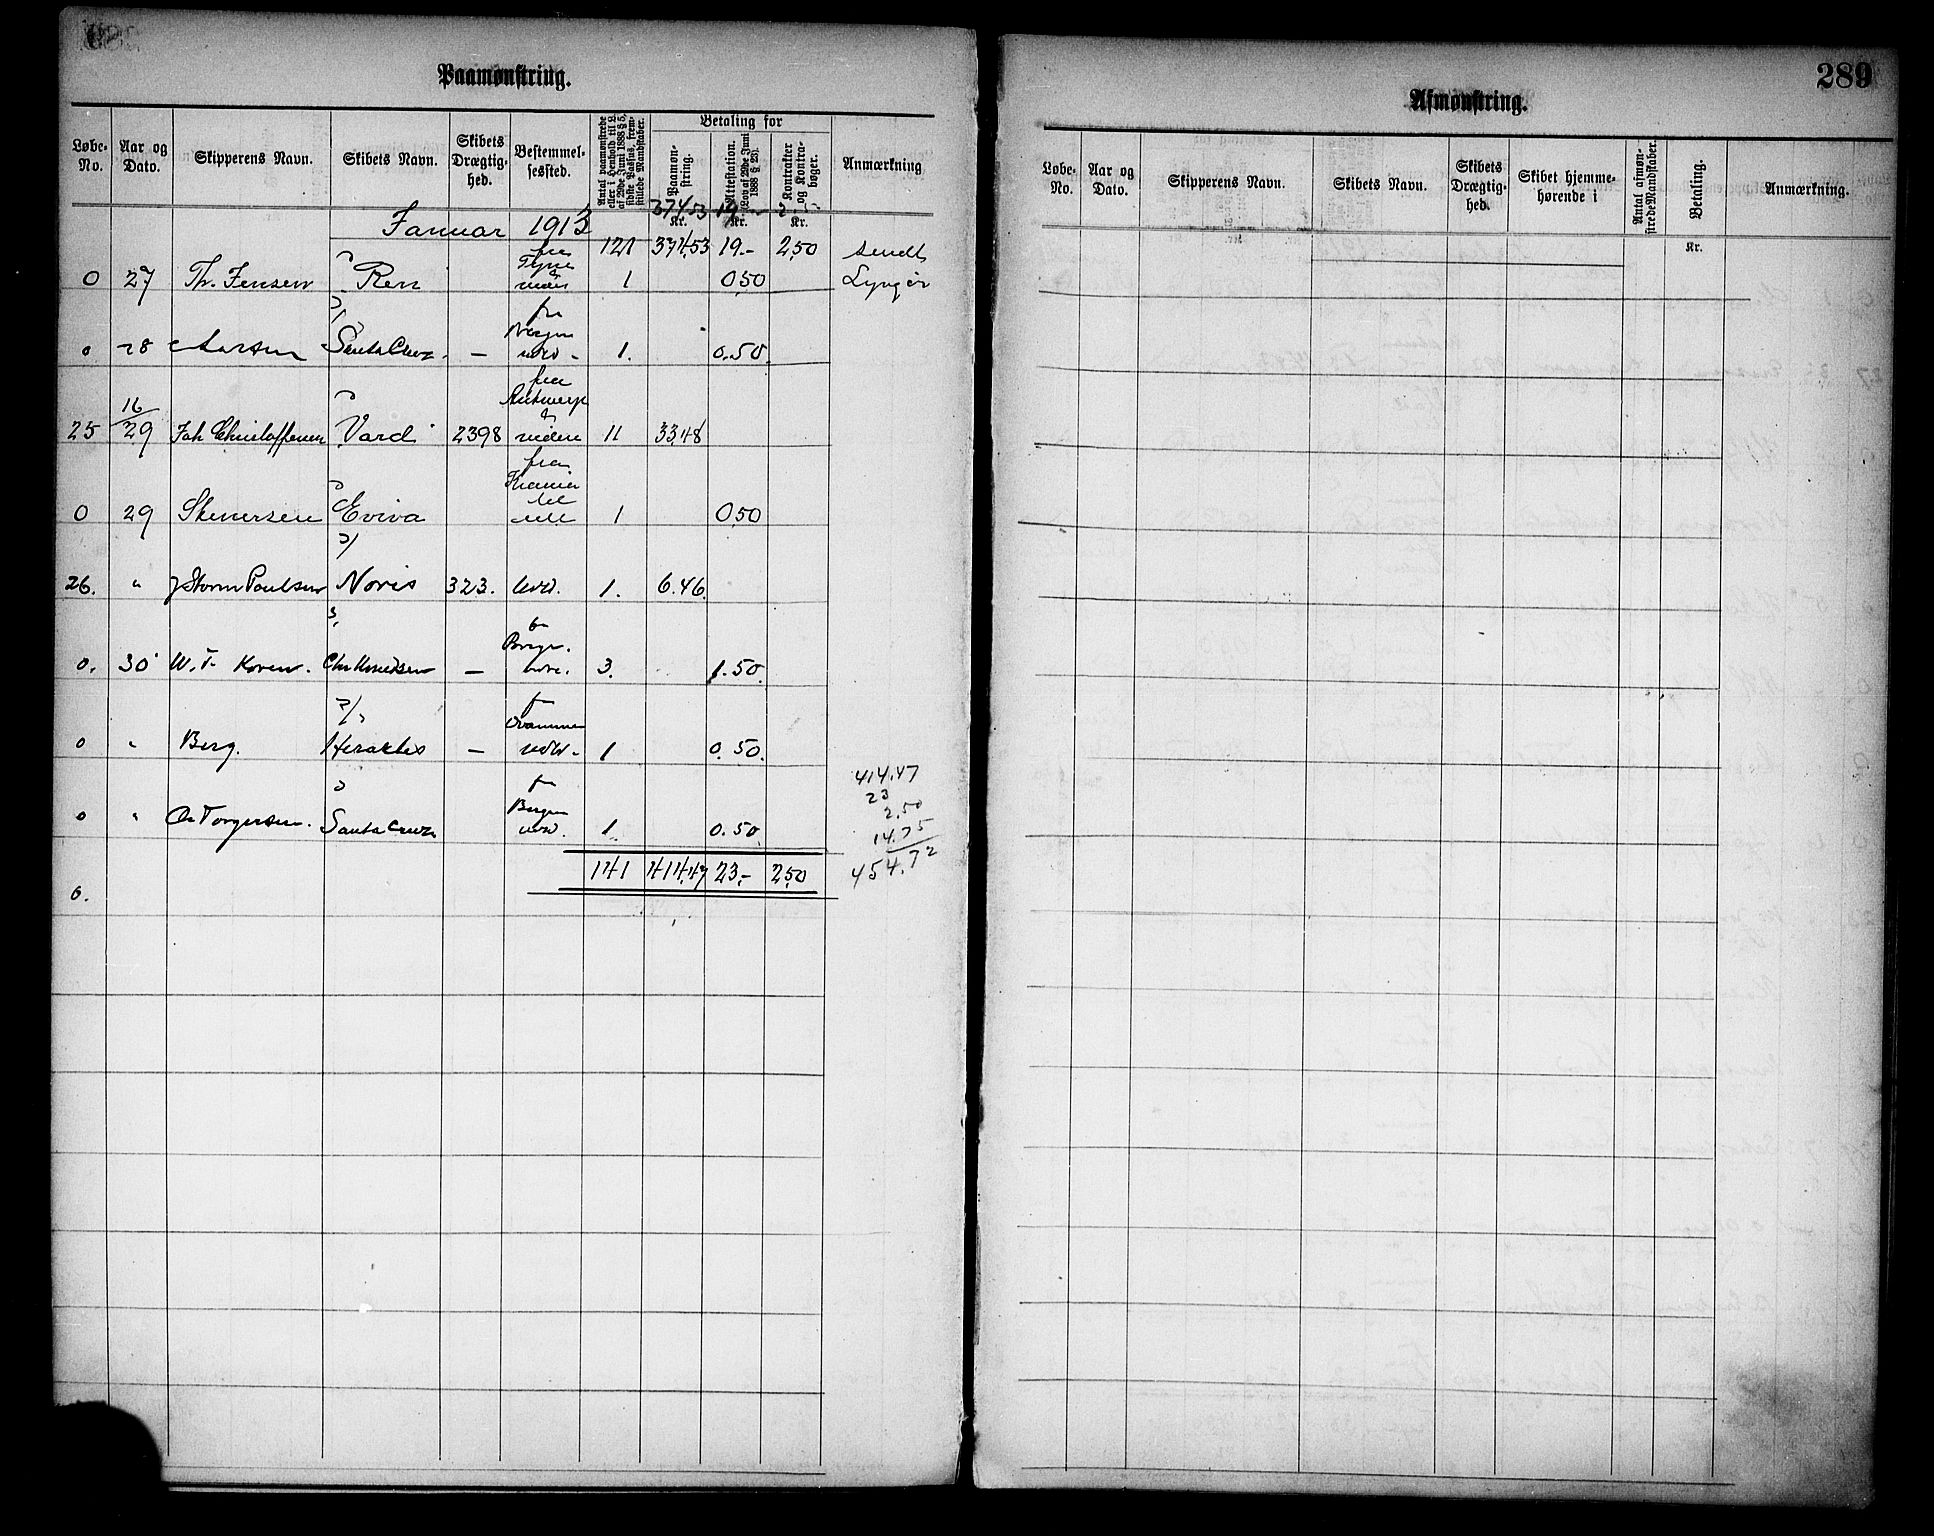 Paamønstring.
Løbe-No. Aar og Dato. Skipperens Navn. Skibets Navn. Skibets Drægtig-hed. Bestemmel-sessted. Antal paamønstrede eller i Henhold til L. af 29de Juni 1888 § 5, sidste Passus, frem-stillede Mandskaber. Betaling for Paamøn-string. Kr. Attestation. (Lov af 29de Juni 1888 § 23). Kr. Kontrakter og Kontra-bøger. Kr. Anmærkning
374 53 19,-
Januar 1913
121 374,53 19.- 2,50 sendt
fra Tyne
0 27 Th. Jensen Ren 1 0,50 Lyngør
fra Bergen
0 28 Larsen Santa Cruz - 1. 0.50.
fra Antwerp
25 16/29 Joh Christoffersen Vard 2398 videre 11 33,48
fra
0 29 Eviva 1 0 50
26. " J Storm Paulsen Noris 323. 1. 6.46.
0. 30 W. T. Koren. Chr Knudsen - 3. 1.50.
fr Drammen
0 " Berg. Herakles - 1 0.50.
fr Bergen
0 " Torgersen. Santa Cruz 1. 0.50
141 414,47 23,- 2,50
0.
414.47
23
2.50
14.75
454.72
289
Afmønstring.
Løbe-No. Aar og Dato. Skipperens Navn. Skibets Navn. Skibets Drægtig-hed. Skibet hjemme-hørende i Antal afmøn-strede Mandskaber. Betaling. Kr. Anmærkning.